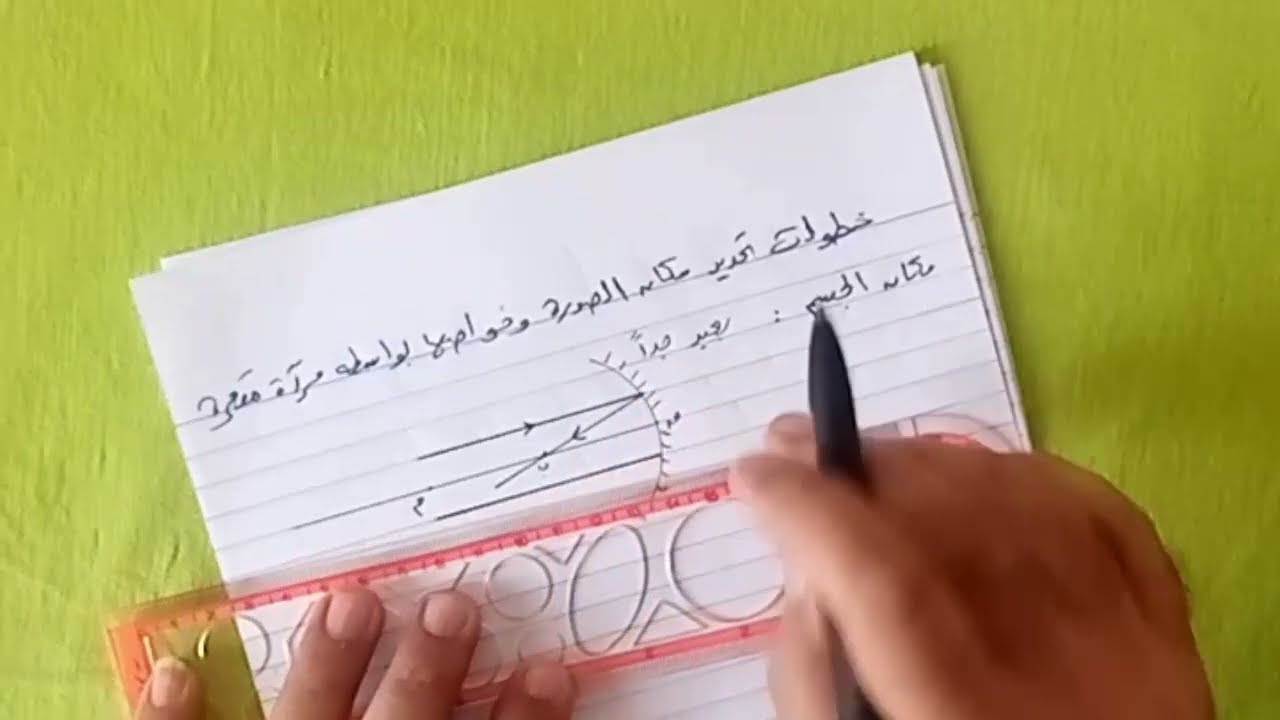 خطوات تحديد مكان الصورة وخواصها بواسطه مرآة مقعرة
مكان الجسم : بعيد جداً
م